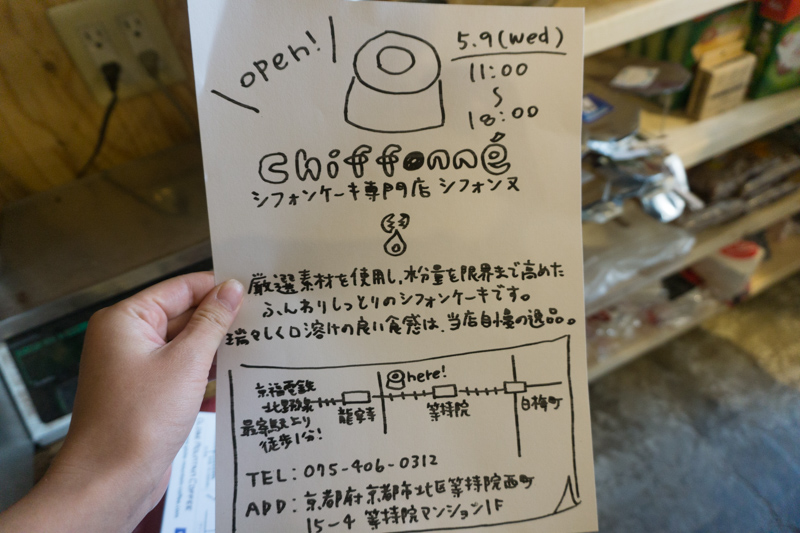 open!
5.9(wed)
11:00
〜
18:00
Chiffonné
シフォンケーキ専門店 シフォン又
厳選素材を使用し、水分量を限界まで高めた
ふんわりしっとりのシフォンケーキです。
瑞々しく口溶けの良い食感は、当店自慢の逸品。
here!
京福電鉄
北野線
最寄駅より
徒歩1分!
龍安寺
等持院
白梅町
TEL:075-406-0312
ADD:京都府京都市北区等持院西町
15-4 等持院マンション1F